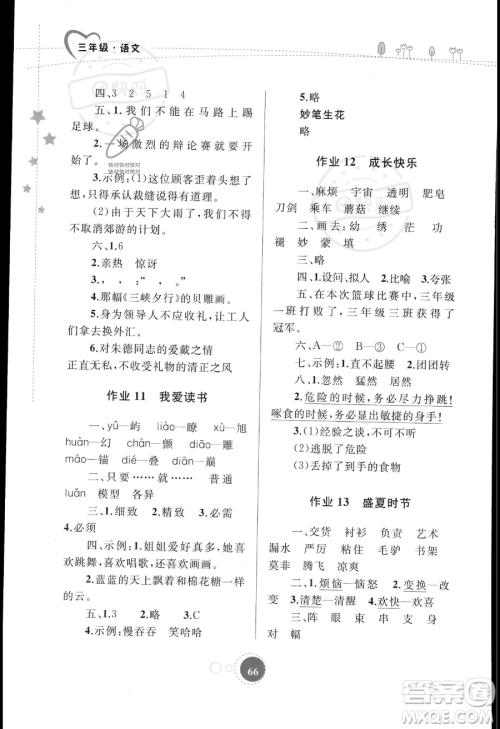 三年级·语文
四、3 2 5 1 4
五、1.我们不能在马路上踢
足球。
2.一场激烈的辩论赛就要开
始了。
3.示例：(1)这位顾客歪着头想了
想，只得承认裁缝说得有道理。
(2)由于天下大雨了，我们不得
不取消郊游的计划。
六、1.6
2.亲热 惊讶
3.， ， “ ， 。”
4.那幅《三峡夕行》的贝雕画。
5.身为领导人不接受礼物，让工
人拿去换外汇。
6.对朱德同志的爱戴之情
正直无私，不收受礼物的清正之风
作业 11 我爱读书
一、yǔ—屿 liáo—辽 xù—旭
瞄—描 chàn—颤
锚—描 岔—叠 liáng—凉
luǎn 模型 各异
三、1.细致 2.精致 3.必需
4.必须
四、示例：1.姐姐爱好真多，她喜
欢跳舞，喜欢唱歌，喜欢画画。
2.蓝蓝的天上飘着和棉花糖一样
的云。
五、1.3 2.略 3.C
4.示例：慢吞吞 笑哈哈
5.略
妙笔生花
略
作业 12 成长快乐
一、麻烦 宇宙 透明 肥皂
刀剑 乘车 蘑菇 继续
二、画去：幼 绣 茫 功
褪 妙 蒙 填
三、略
四、1.设问、拟人 2.比喻 3.夸张
五、在本次篮球比赛中，三年级
一班打败了三年级三班获得了
冠军。
六、A—① B—② C—③
七、示例：1.直不起腰 2.团团转
八、1.忽然 猛然 居然
2.危险的时候，务必尽力挣脱！
啄食的时候，务必显出敏捷的身手！
3.(1)经验之谈，不可大意
(2)逃脱了危险
(3)丢掉了到手的食物
作业 13 盛夏时节
一、交货 衬衫 负责 艺术
漏水 严厉 粘贴 毛驴 书架
莫非 腾飞 凉爽
二、1.烦恼—恼怒 2.变换—改
变 3.清楚—清醒 4.欢快—欢喜
三、阵 眼 朵 束 支 串
对 幅
66
快对快对快对
快对快对快对
答案圈
MXQE.COM